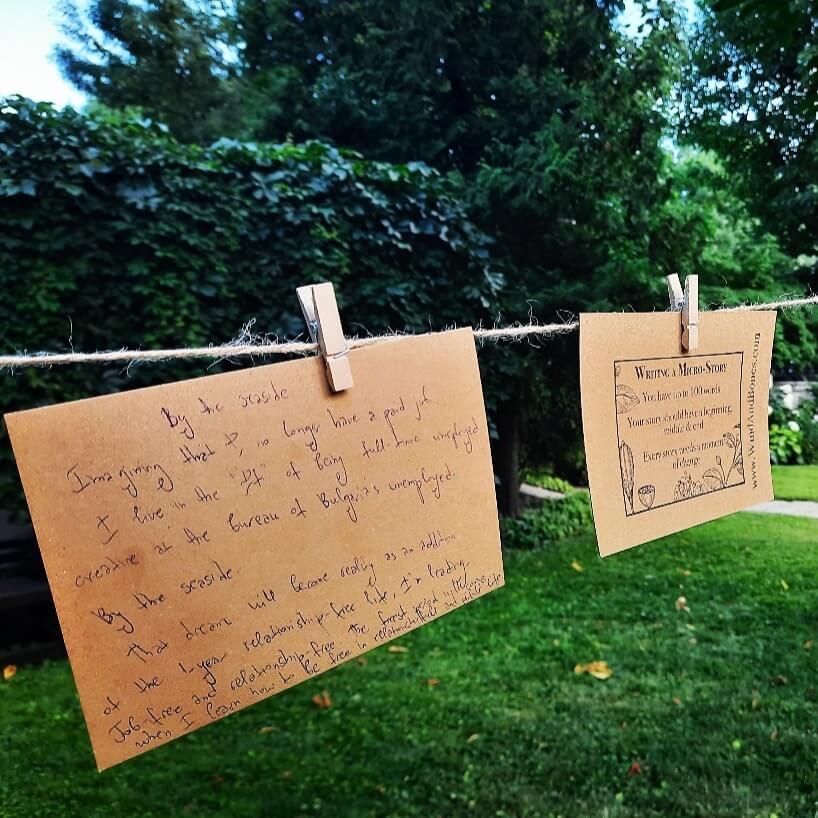 By the seaside
Imagining that I, no longer have a paid job.
I live in the of being full-time unemployed
creative at the bureau of Bulgaria's unemployed.
By the seaside.
That dream will become reality as an addition
of the 1-year relationship-free life, I'm leading.
Job-free and relationship-free. The period in
when I learn how to be free in and
WRITING A MICRO-STORY
You have up to 100 words
Your story should have a beginning,
middle & end
Every story needs a moment
of change
www.WindAndBones.com